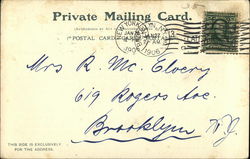 Private Mailing Card.
POSTAL CARD
NEW YORK
JAN
1906
Mrs R. Mc. Elvery
619 Rogers Ave.
Brooklyn N.Y.
THIS SIDE IS EXCLUSIVELY
FOR THE ADDRESS.